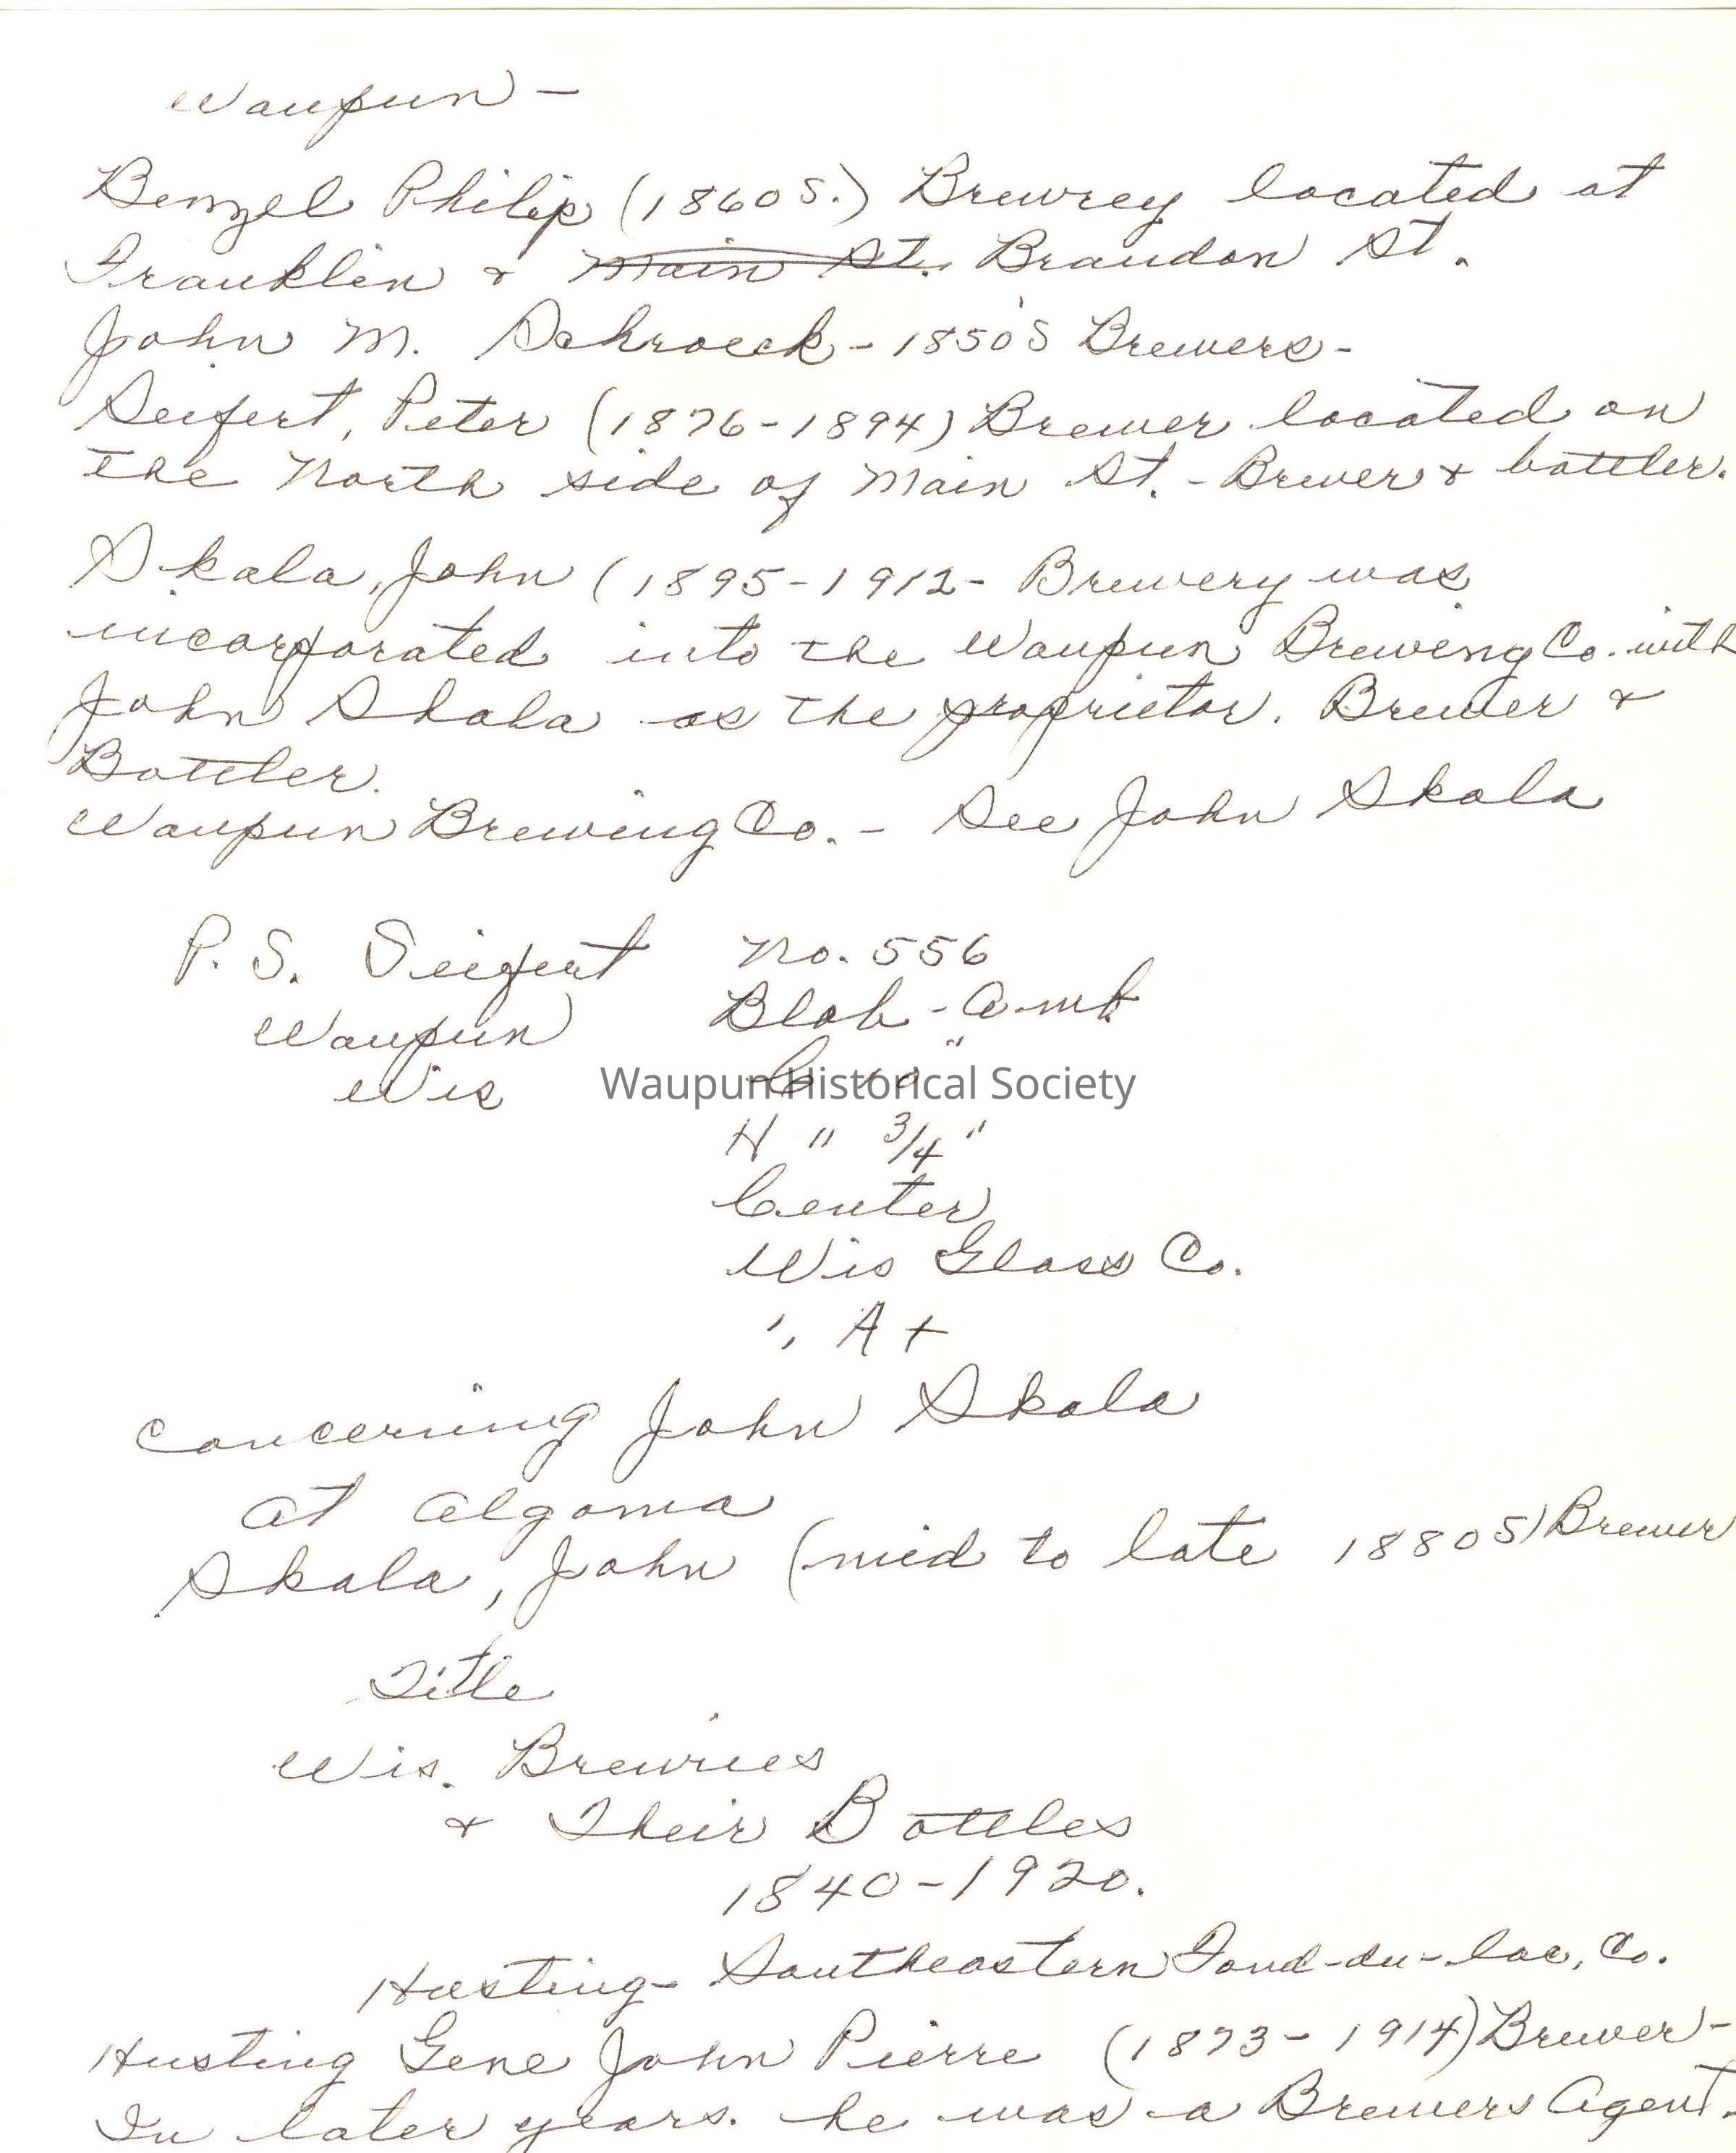 Waupun -
Benzel Philip (1860s.) Brewrey located at
Franklin & Main St. Brandon St.
John M. Schroeck - 1850's Brewers -
Seifert, Peter (1876-1894) Brewer located on
the North side of Main St. - Brewer & bottler.
Skala, John (1895-1912 - Brewery was
incorporated into the Waupun Brewing Co. with
John Skala as the proprietor. Brewer &
Bottler.
Waupun Brewing Co. - See John Skala
P. S. Seifert No. 556
Waupun Blob - Amb
Wis
Waupun Historical Society
H " 3/4"
Center
Wis Glass Co.
" A +
Concerning John Skala
at Algoma
Skala, John (mid to late 1880s) Brewer
Title
Wis. Brewries
& Their Bottles
1840-1920.
Husting - Southeastern Fond-du-lac, Co.
Husting Gene John Pierre (1873-1914) Brewer -
In later years. he was a Brewers Agent.